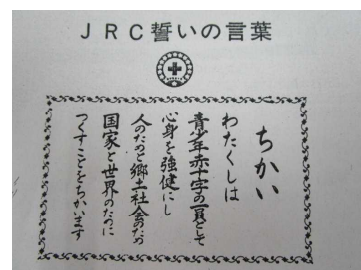 JRC誓いの言葉
ちかい
わたくしは
青少年赤十字の一員として
心身を強健にし
人のためと郷土社会のため
国家と世界のために
つくすことをちかいます